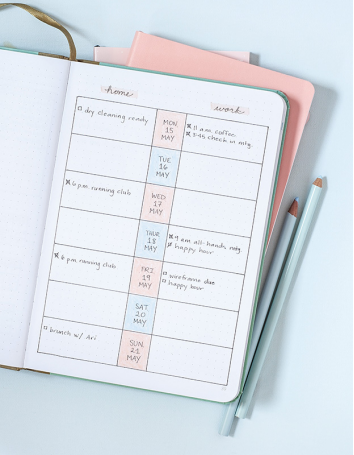 home
work
dry cleaning ready
MON
15
MAY
11 a.m. coffee
3:45 check in mtg.
TUE
16
MAY
6 p.m. running club
WED
17
MAY
THUR
18
MAY
9 a.m. all-hands mtg
happy hour
6 p.m. running club
FRI
19
MAY
wireframe due
happy hour
SAT
20
MAY
brunch w/ Ari
SUN
21
MAY